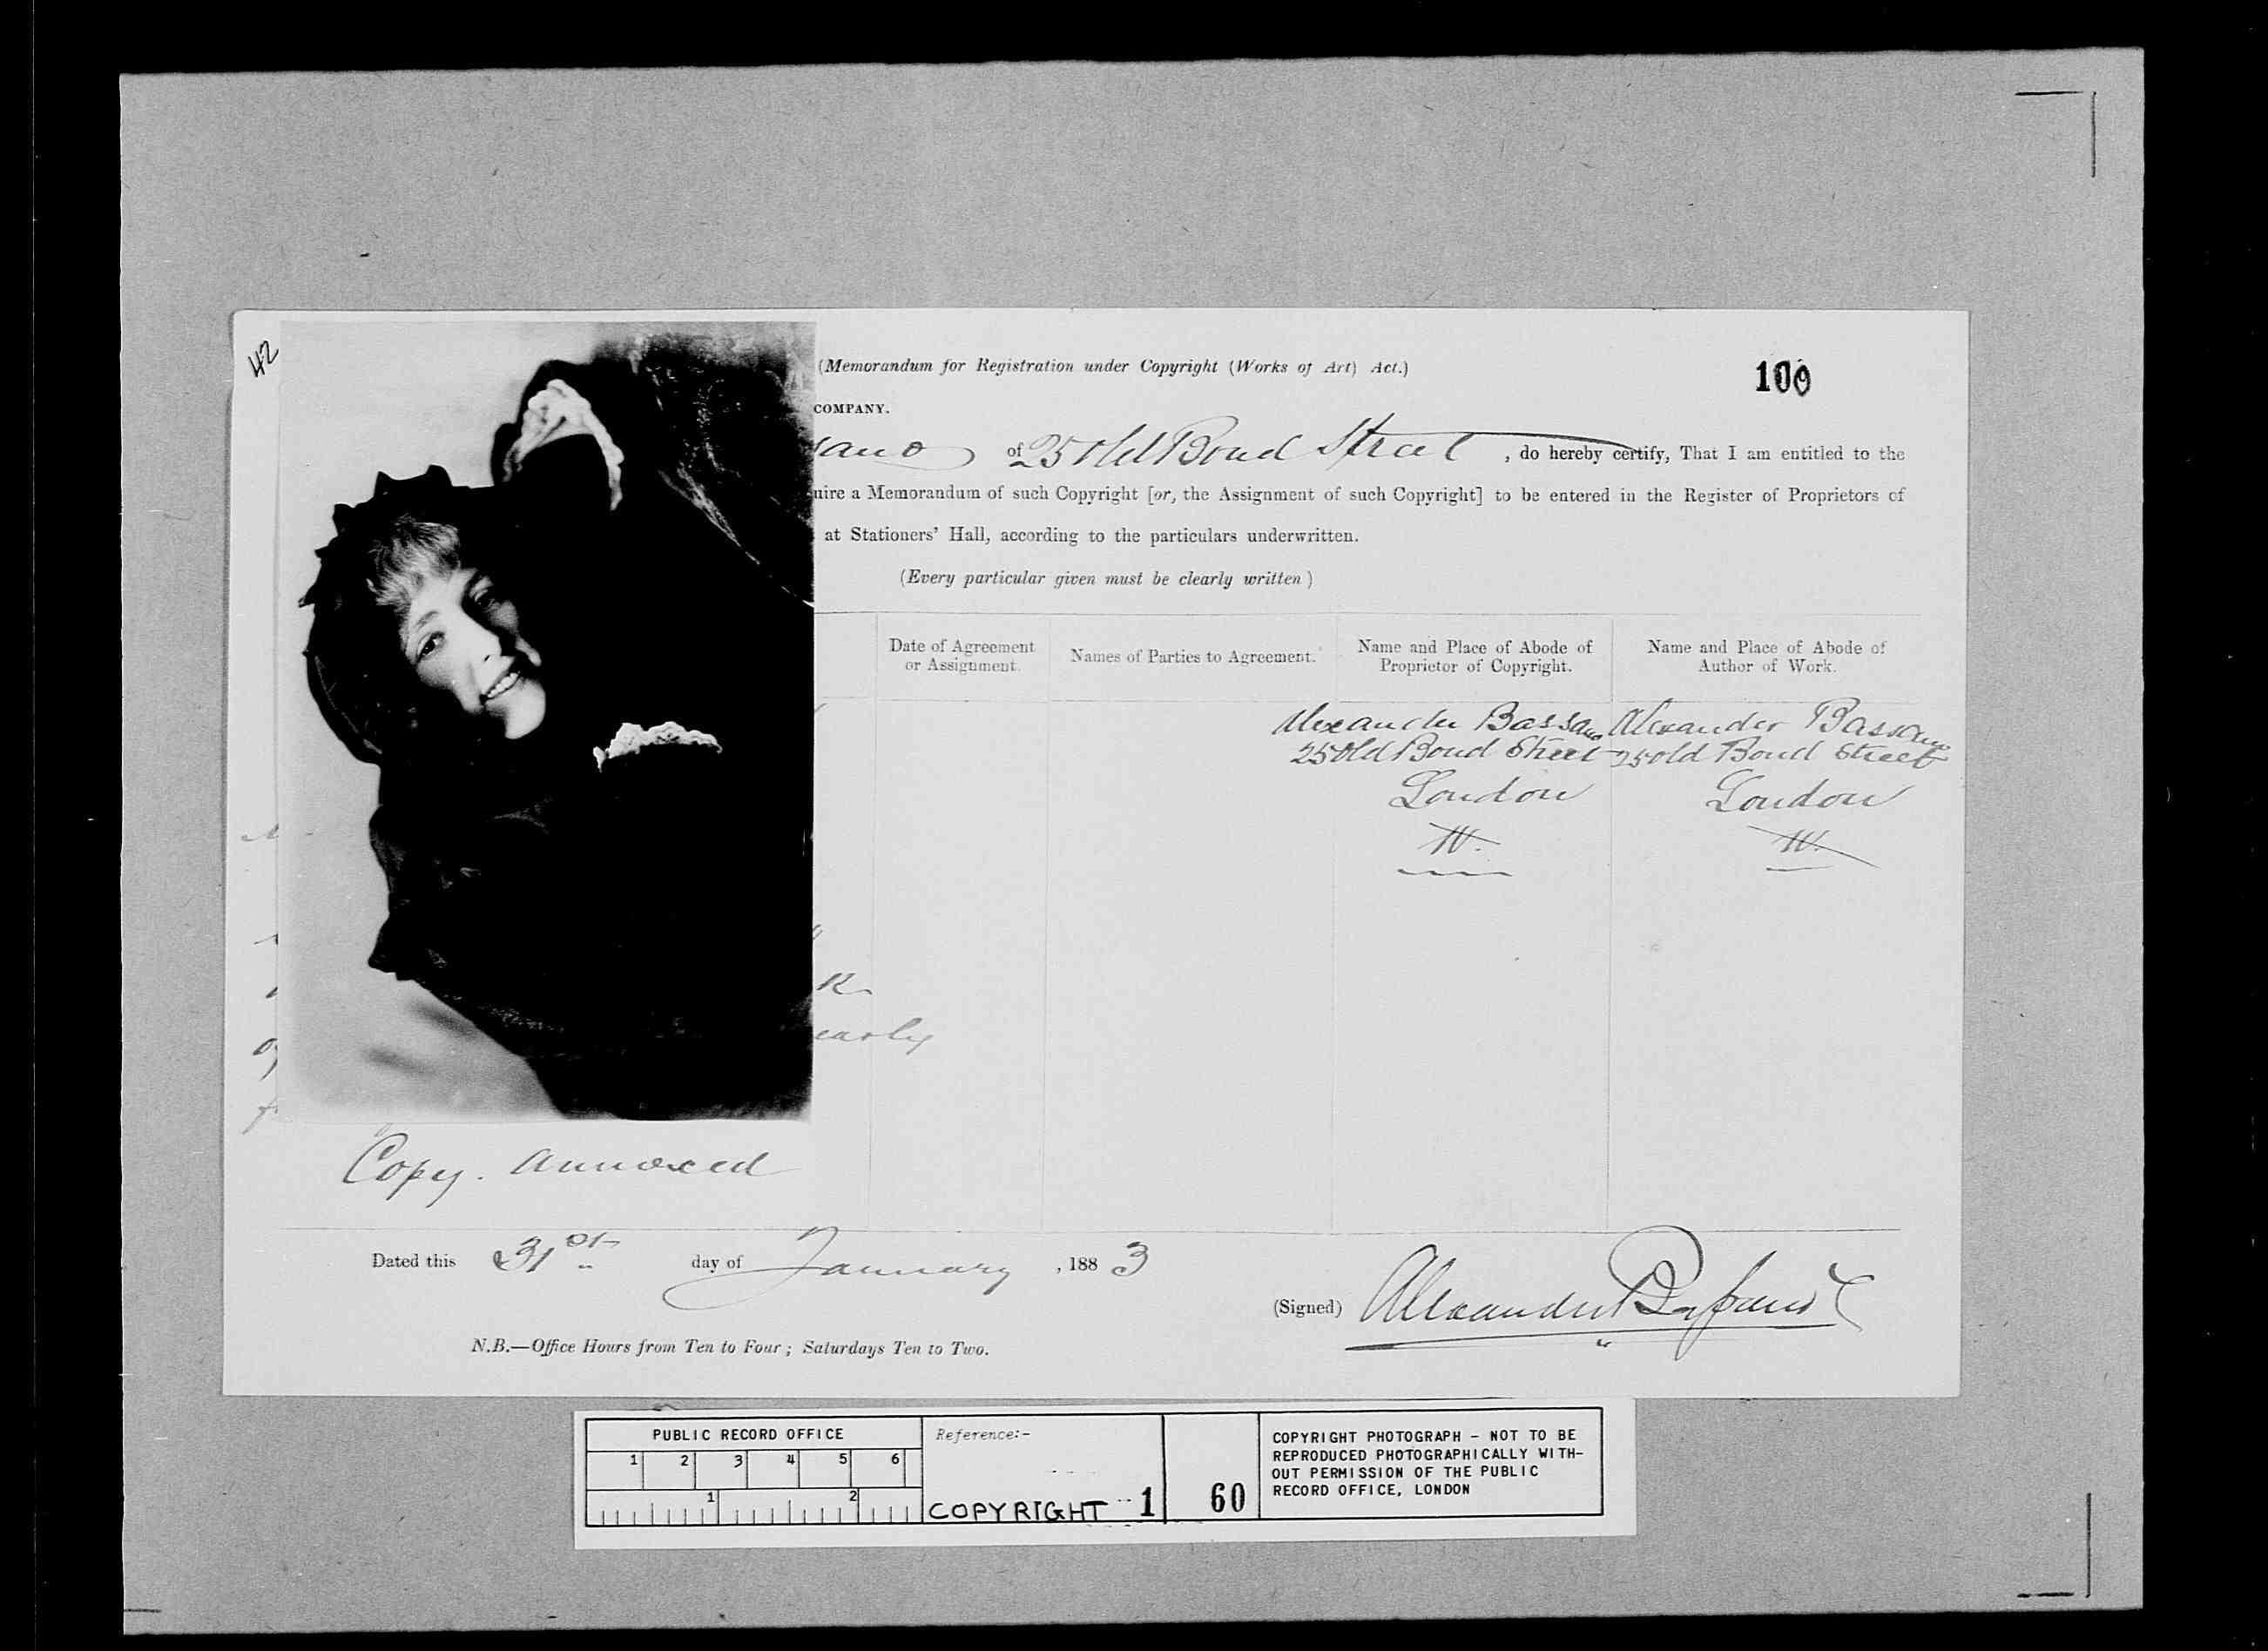 42
(Memorandum for Registration under Copyright (Works of Art) Act.)
100
COMPANY.
sano of 25 Old Bond Street , do hereby certify, That I am entitled to the
uire a Memorandum of such Copyright [or, the Assignment of such Copyright] to be entered in the Register of Proprietors of
at Stationers' Hall, according to the particulars underwritten.
(Every particular given must be clearly written )
Date of Agreement or Assignment.
Names of Parties to Agreement.
Name and Place of Abode of Proprietor of Copyright.
Name and Place of Abode of Author of Work.
Alexander Bassano
25 Old Bond Street
London
W.
Alexander Bassano
25 Old Bond Street
London
W.
early
Copy. annexed
Dated this 31st day of January , 188 3
(Signed) Alexander Bassano
N.B.—Office Hours from Ten to Four ; Saturdays Ten to Two.
PUBLIC RECORD OFFICE
1 2 3 4 5 6
1 2
Reference:-
COPYRIGHT 1
60
COPYRIGHT PHOTOGRAPH - NOT TO BE
REPRODUCED PHOTOGRAPHICALLY WITH-
OUT PERMISSION OF THE PUBLIC
RECORD OFFICE, LONDON